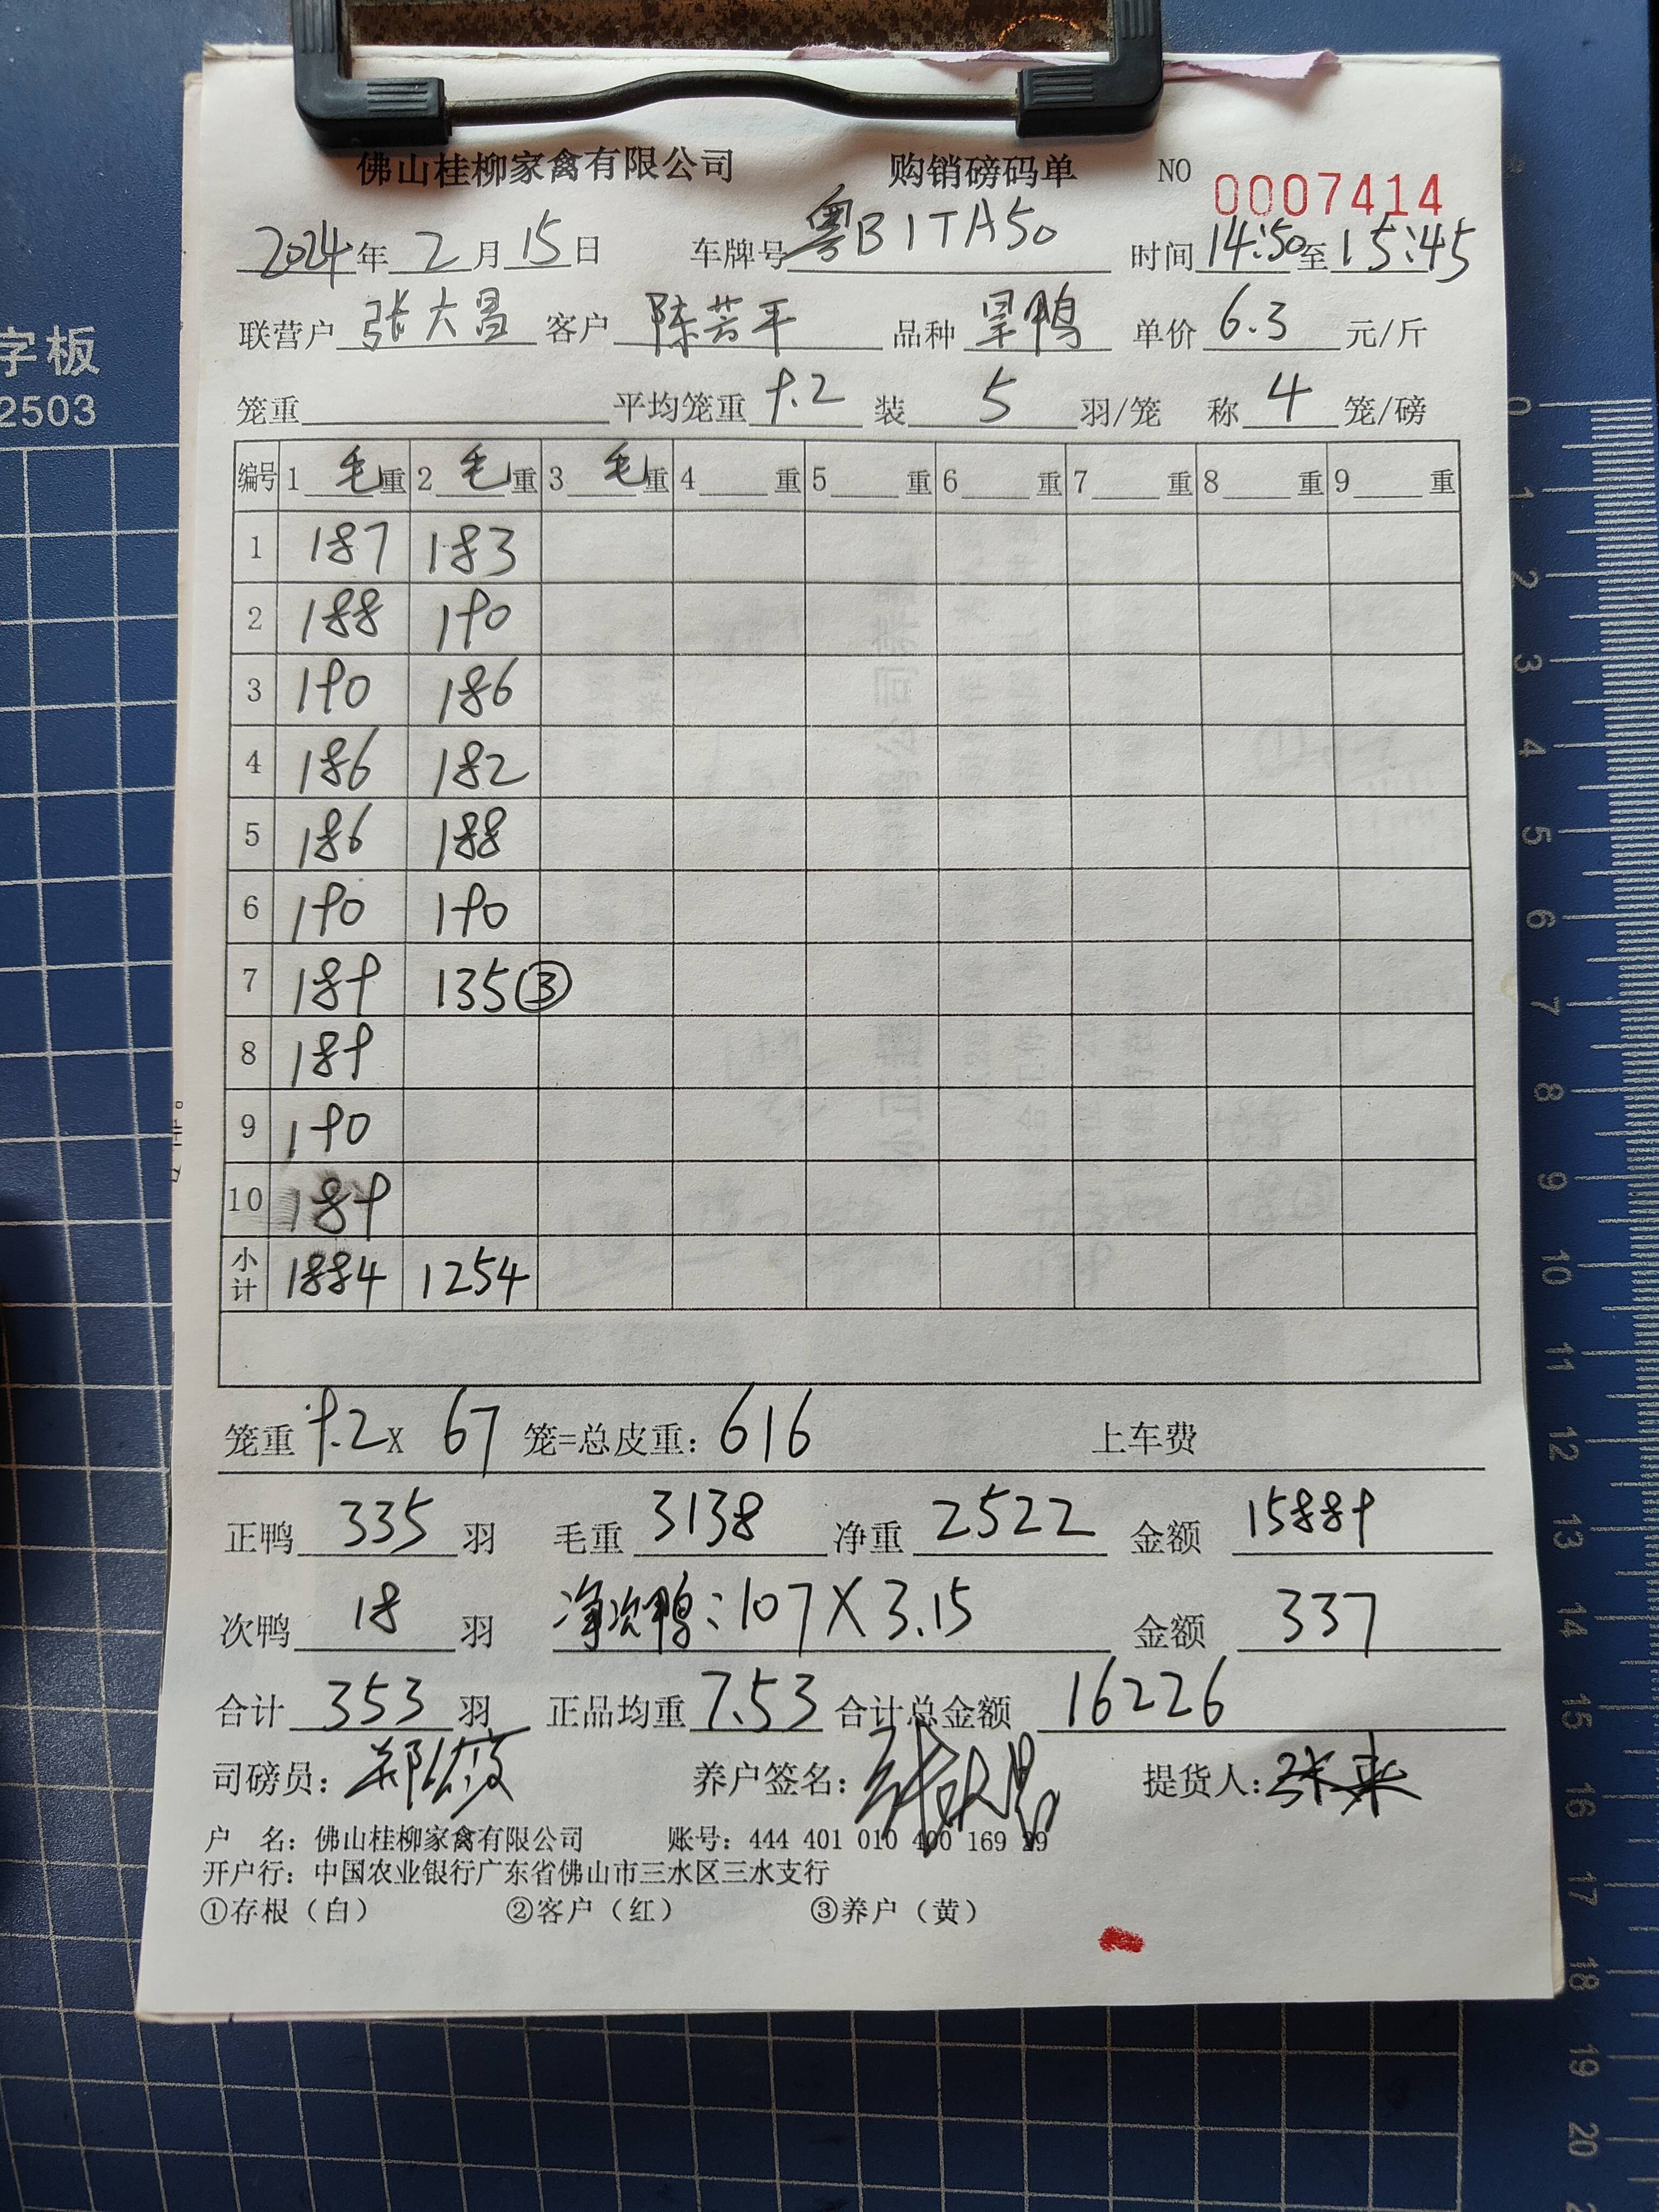 佛山桂柳家禽有限公司 购销磅码单 NO 0007414
2024年 2 月 15 日 车牌号 粤B1TA50 时间 14:50 至 15:45
联营户 张大昌 客户 陈芳平 品种 旱鸭 单价 6.3 元/斤
笼重 平均笼重 9.2 装 5 羽/笼 称 4 笼/磅
编号 1 毛重 2 毛重 3 毛重 4 重 5 重 6 重 7 重 8 重 9 重
1 187 183
2 188 190
3 190 186
4 186 182
5 186 188
6 190 190
7 189 135③
8 189
9 190
10 189
小计 1884 1254
笼重 9.2 X 67 笼=总皮重: 616 上车费
正鸭 335 羽 毛重 3138 净重 2522 金额 15889
次鸭 18 羽 净次鸭: 107 X 3.15 金额 337
合计 353 羽 正品均重 7.53 合计总金额 16226
司磅员: 养户签名: 张大昌 提货人:
户 名: 佛山桂柳家禽有限公司 账号: 444 401 010 400 169 29
开户行: 中国农业银行广东省佛山市三水区三水支行
①存根（白） ②客户（红） ③养户（黄）
字板
2503
0 1 2 3 4 5 6 7 8 9 10 11 12 13 14 15 16 17 18 19 20